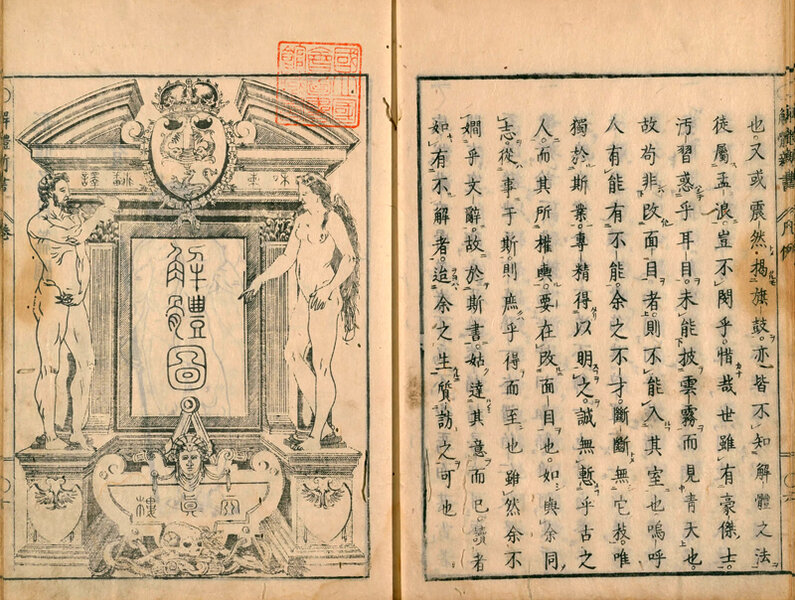 解體新書 凡例
也又或震然。揭旗鼓。亦皆不知解體之法
徒屬孟浪。豈不閔乎。惜哉世雖有豪傑士。
汚習惑乎耳目。未能披雲霧而見青天也。
故苟非改面目者。則不能入其室也嗚呼
人有能有不能。余之不才。斷斷無它技。唯
獨於斯業。專精得以明之。誠無慙乎古之
人。而其所權輿。要在改面目也。如與余同
志。從事于斯。則庶乎得而至也雖然余不
嫺乎文辭。故於斯書。姑達其意而已。讀者
如有不解者。迨余之生。質訪之可也
國立國會圖書館藏書
解體圖
天真樓
解體新書 卷